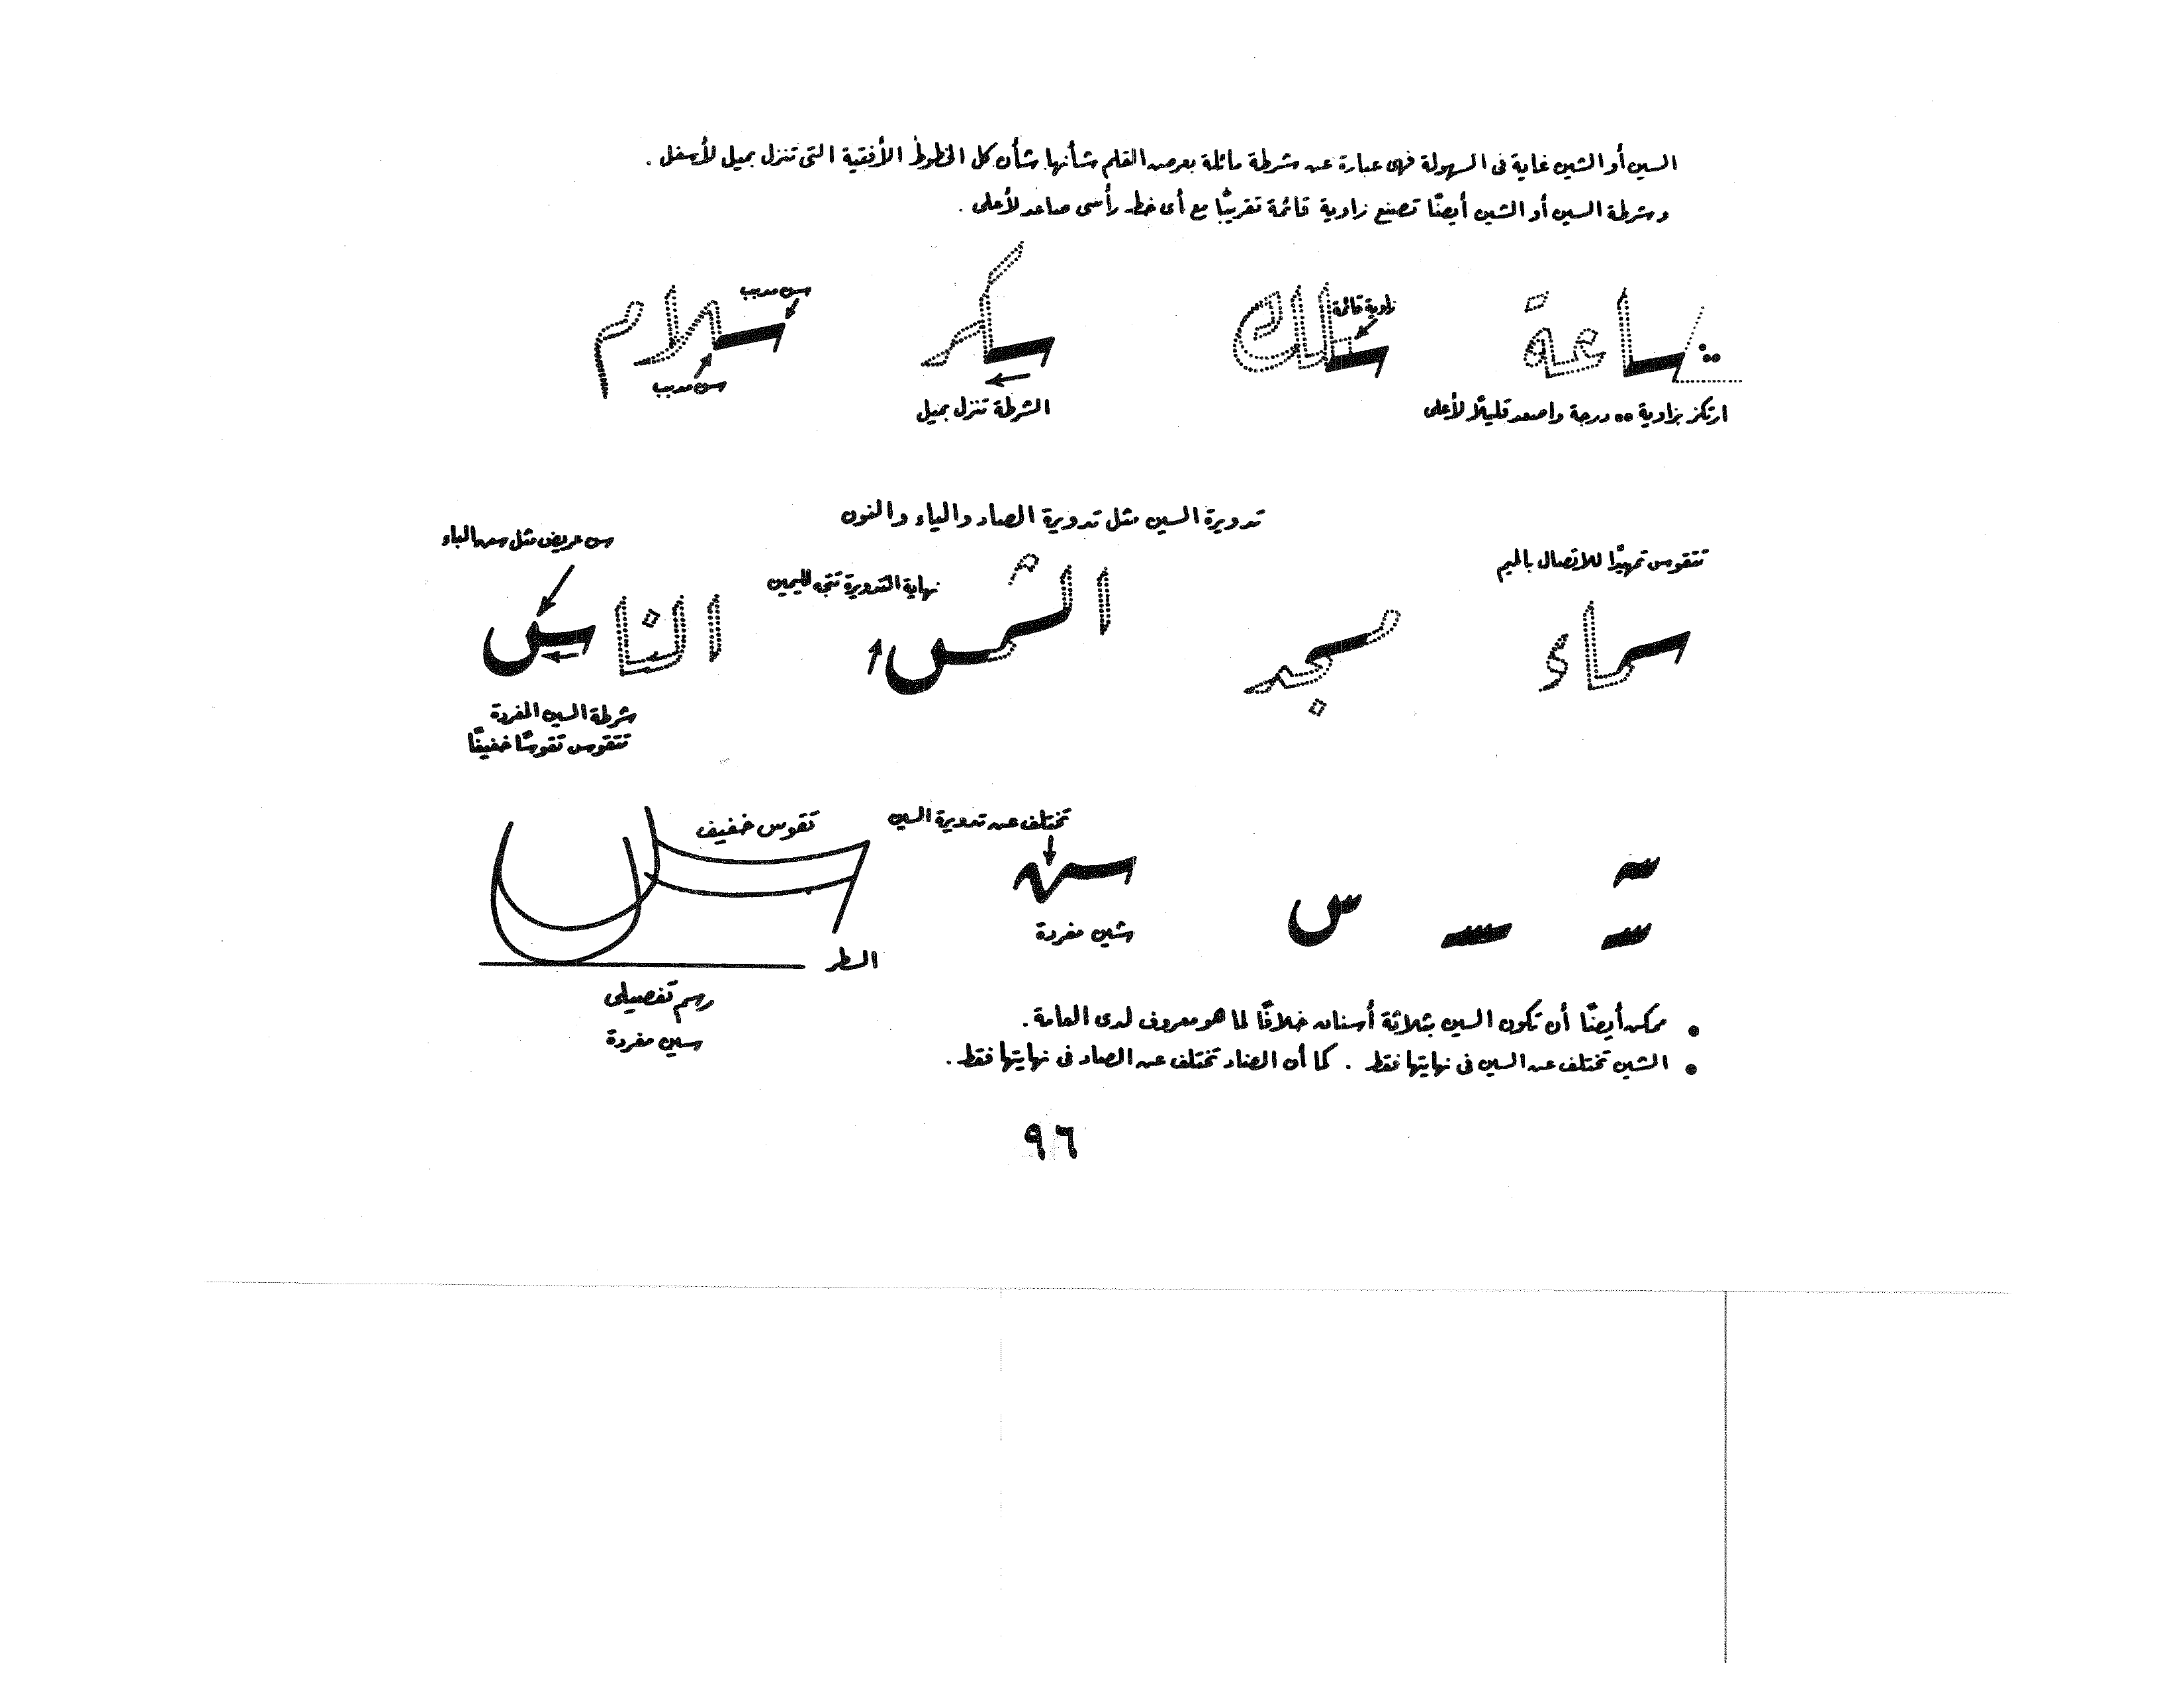 السين أو الشين غاية فى السهولة فهى عبارة عن شرطة مائلة بعرض القلم شأنها شأن كل الخطوط الأفقية التى تنزل بميل لأسفل .
وشرطة السين أو الشين أيضًا تصنع زاوية قائمة تقريبًا مع أى خط رأسى صاعد لأعلى .
ساعة
سلك
سكر
سلام
زاوية قائمة
سن مدبب
سن مدبب
ارتكز بزاوية ٥٥ درجة واصعد قليلاً لأعلى
الشرطة تنزل بميل
تدويرة السين مثل تدويرة الصاد والياء والنون
تتقوس تمهيدًا للاتصال بالميم
نهاية التدويرة تتجه لليمين
سن عريض مثل سن الباء
سماء
الشمس
الناس
شرطة السين المفردة
تتقوس تقوسًا خفيفًا
تختلف عن تدويرة السين
تقوس خفيف
س
شين مفردة
السطر
رسم تفصيلى
سين مفردة
• ممكن أيضًا أن تكون السين بثلاثة أسنان خلافًا لما هو معروف لدى العامة .
• الشين تختلف عن السين فى نهايتها فقط . كما أن الضاد تختلف عن الصاد فى نهايتها فقط .
٩٦